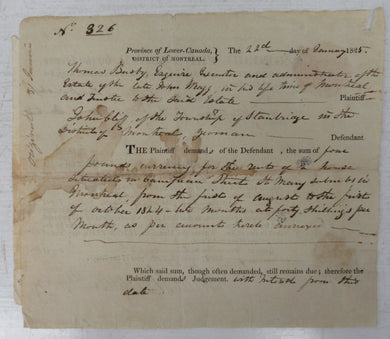 No. 326
Province of Lower-Canada,
DISTRICT OF MONTREAL.
The 22d day of January 1825.
Thomas Busby, Esquire Executor and administrator of the
Estate of the late John Gray, in his life time of Montreal
and Trustee to the said Estate Plaintiff
John of the Township of Stanbridge in the
District of Montreal, Yeoman Defendant
THE Plaintiff demands of the Defendant, the sum of four
pounds, currency for the rent of a house
situated in Street St Mary suburbs in
Montreal, from the first of August to the first
of october 1824 two months at forty shillings per
Month, as per account hereto annexed
Which said sum, though often demanded, still remains due; therefore the
Plaintiff demands Judgement. with interest from this
date